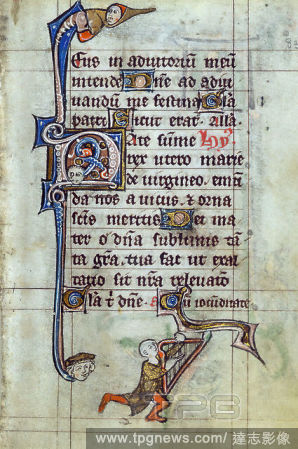 Eus in adiutoriū meū
intende. Dñe ad adiu
uandū me festina Gla
patri. Sicut erat. Alla.
ate sūme hy
rex utero marie
de uirgineo. emū
da nos a uiciis. & orna
scīs meritis. Et ma
ter o dña sublimis ta
ta grā. tua fac ut exal
tatio sit nrā releuatō
Gla t' dñe. iocunditate
TPG
www.tpgnews.com/ 達志影像